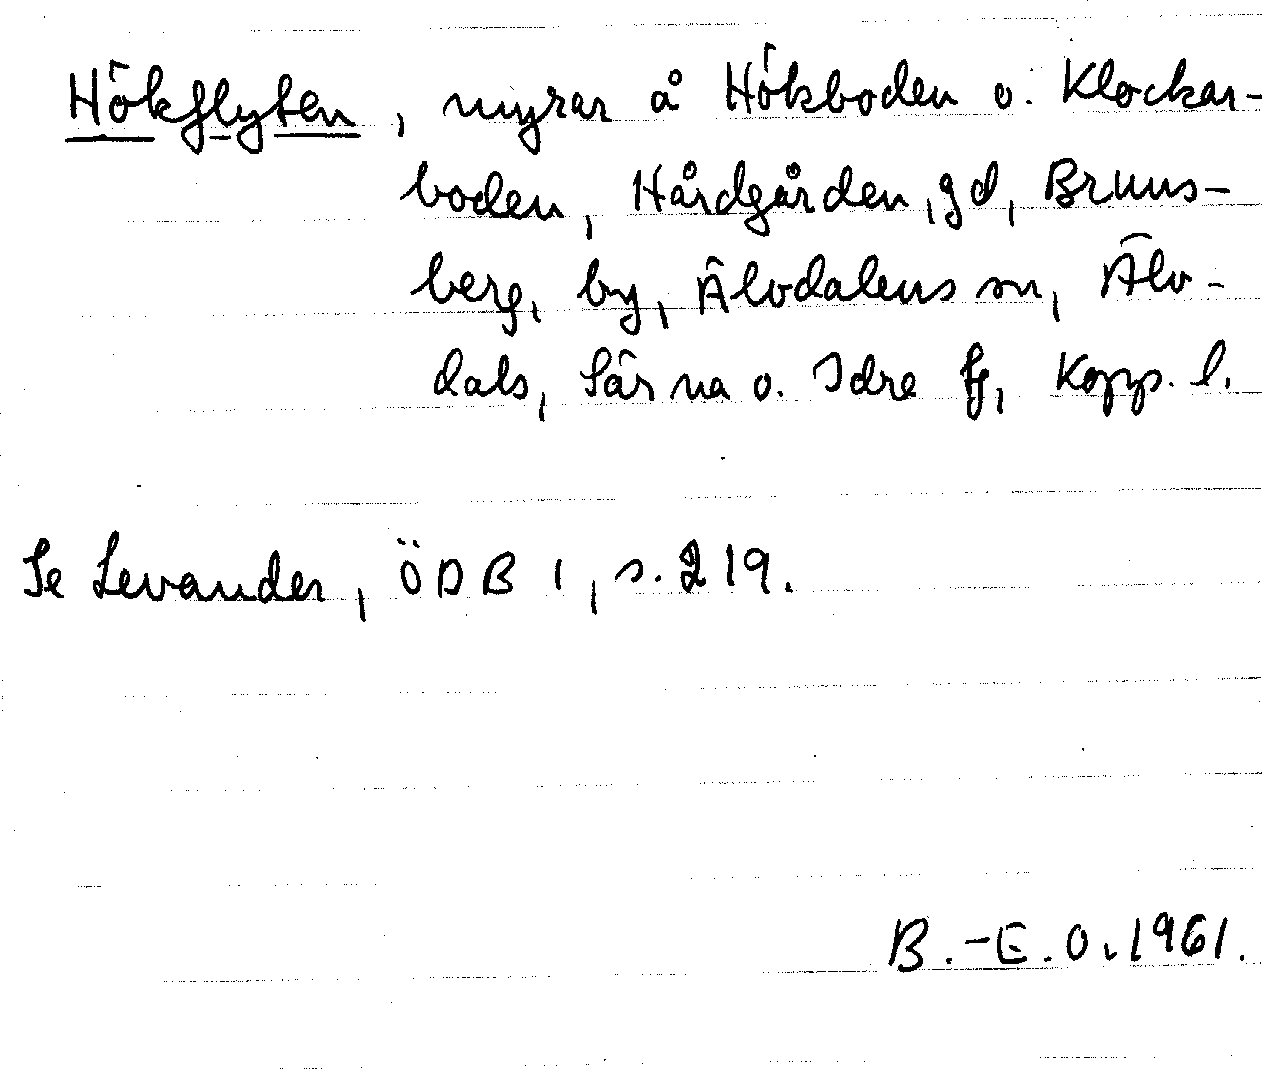 Hökflyten, myrar å Hökboden o. Klockar-
boden, Hårdgården, gd, Bruns-
berg, by, Älvdalens sn, Älv-
dals, Särna o. Idre tg, Kopp. l.
Se Levander, ÖDB 1, s. 219.
B.-E.O. 1961.